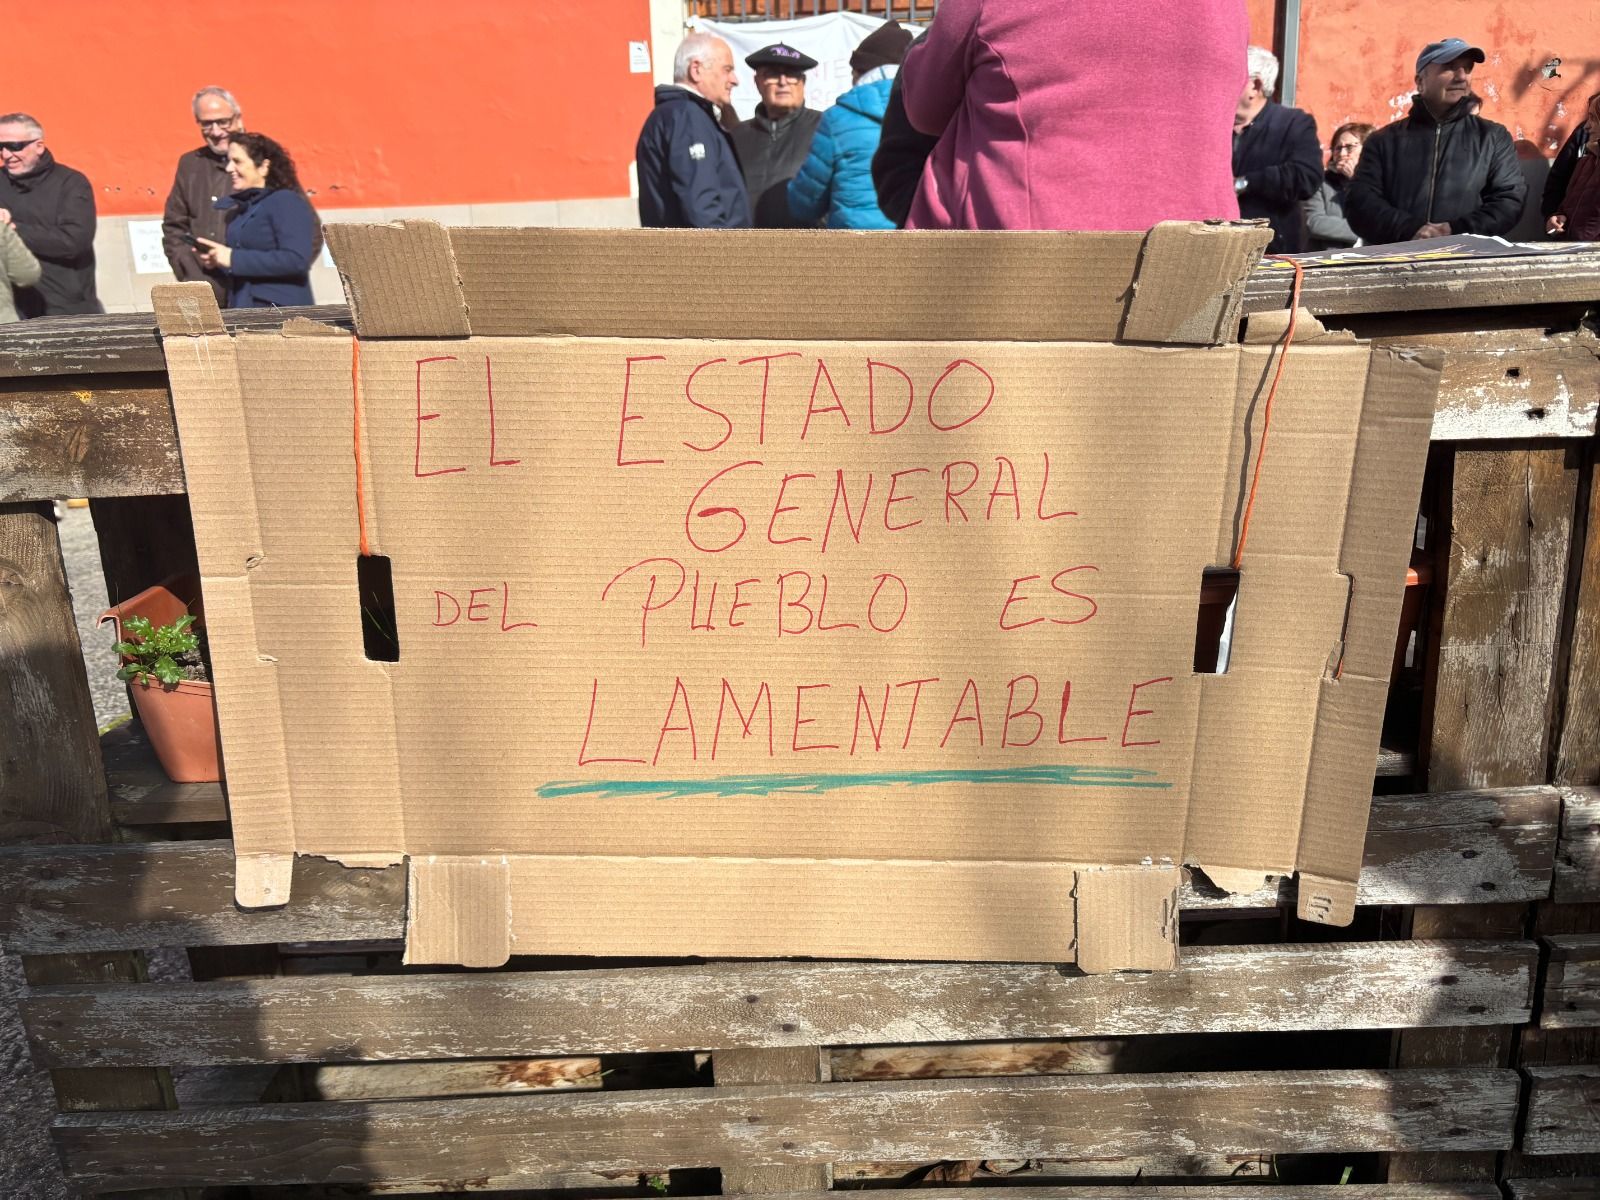 EL ESTADO
GENERAL
DEL PUEBLO ES
LAMENTABLE